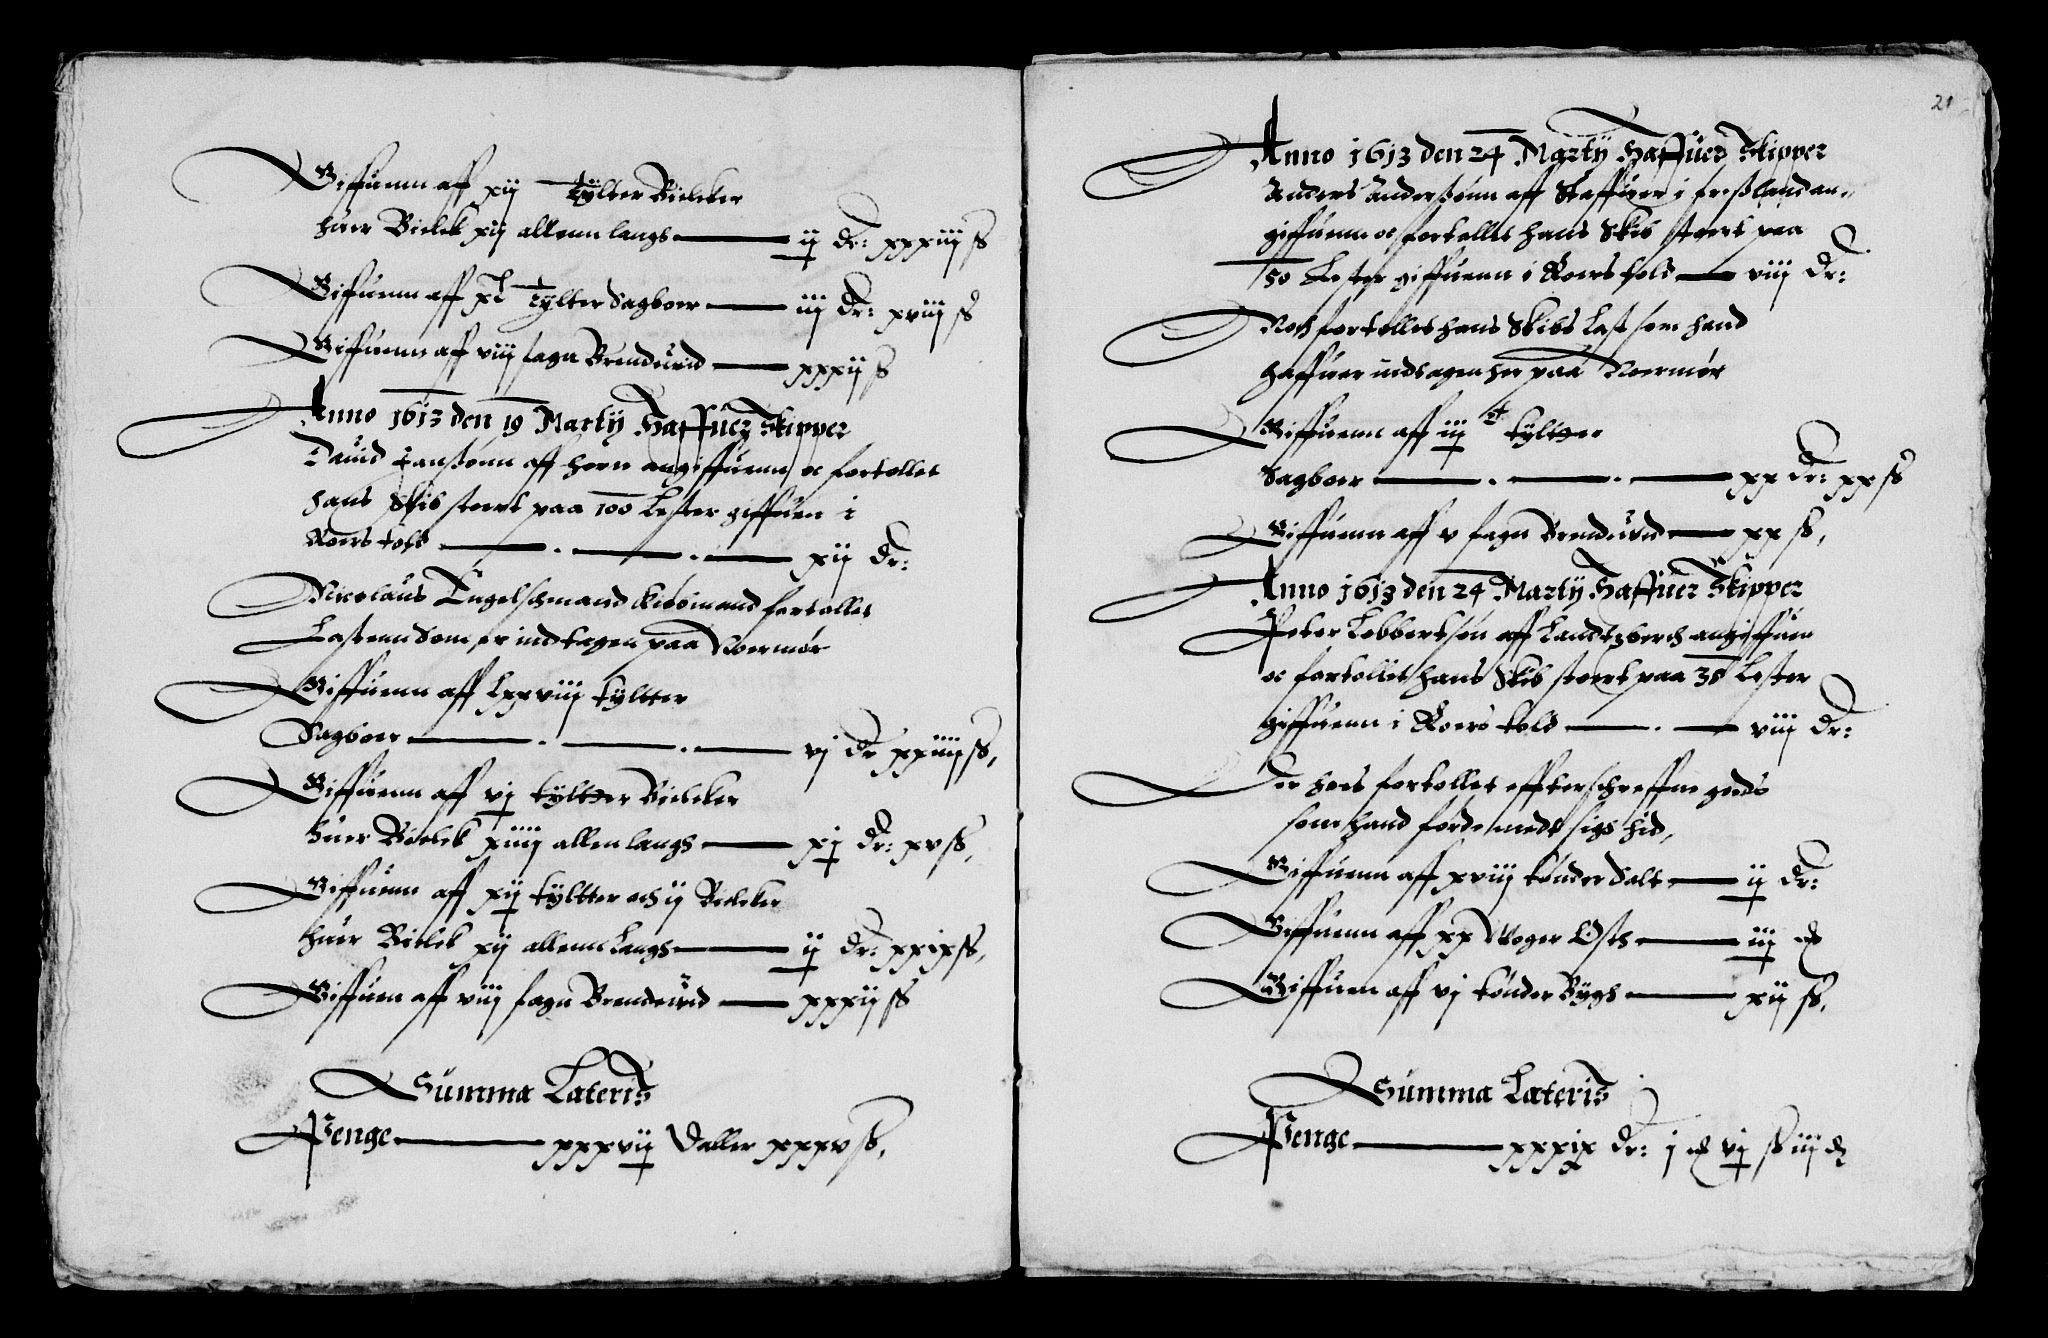 Giffuenn aff xij Tylter Bielcker
huer Bielck xij allenn langs ij dr: xxxiiij ß
Giffuenn aff xl Tylter Sagboer iij dr: xviij ß
Giffuenn aff viij fagn Brendeuid xxxij ß
Anno 1613 den 19 Martÿ Haffuer Skipper
Dauid Janßønn aff horn angiffuenn oc fortollet
hans Skib stoert paa 100 Lester giffuen i
Roers told xij dr:
Nicolaus Engelschmand Kiøbmand fortollet
Lastenn Som er indtagen paa Noermør
Giffuenn aff Lxxviij tyltter
Sagboer vj dr xxiiij ß,
Giffuenn aff vj tyltter Bielcker
huer Bielck xiiij allen langs xj dr: xv ß,
Giffuenn aff xij tyltter och ij Bielcker
huer Bielck xij allenn Langs ij dr: xxix ß,
Giffuen aff viij fagn Brendeuid xxxij ß
Summa Lateris
Penge xxxvij Daller xxxv ß,
21
Anno 1613 den 24 Martÿ Haffuer Skipper
Anders Anderßønn aff Staffuer i freßland an-
giffuenn oc fortollet hans Skib stoert paa
50 Lester giffuenn i Roers told viij dr:
Noch fortollet hans Skibs Last som hand
haffuer indtagen her paa Noermør
Giffuenn aff iij c tyltter
Sagboer xx dr: xx ß
Giffuenn aff v fagn Brendeuid xx ß,
Anno 1613 den 24 Martÿ Haffuer Skipper
Peter Lobbertsøn aff Landtzberch angiffuen
oc fortollet hans Skib stoert paa 38 Lester
giffuenn i Roers told viij dr:
Der hoes fortollet effterschreffne guds
som hand førde medt sigh hid,
Giffuenn aff xviij tønder Salt ij dr:
Giffuenn aff xx Woger Osth iij
Giffuen aff vj tønder Bygh xij ß,
Summa Lateris
Penge xxxix dr: j vj ß iij